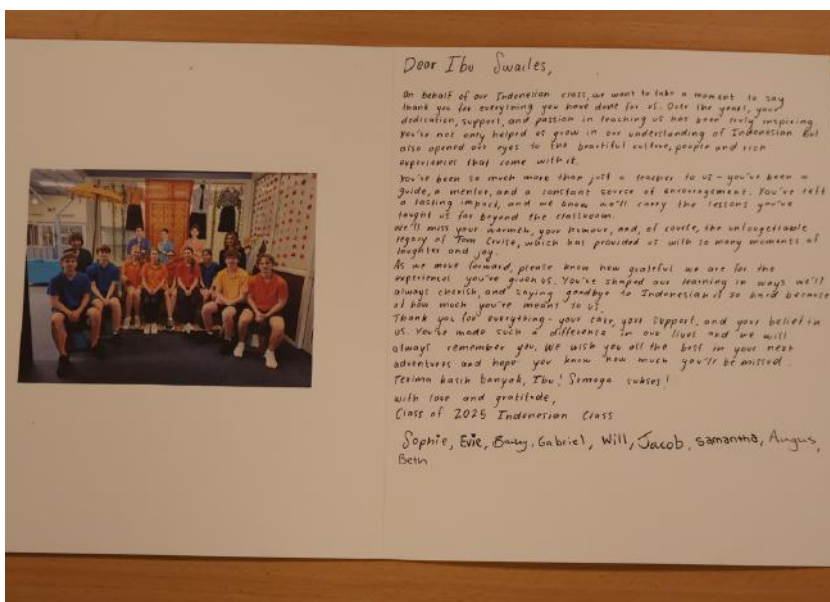 Dear Ibu Swailes,
On behalf of our Indonesian class, we want to take a moment to say
thank you for everything you have done for us. Over the years, your
dedication, support, and passion in teaching us has been truly inspiring.
You've not only helped us grow in our understanding of Indonesian but
also opened our eyes to the beautiful culture, people and rich
experiences that come with it.
You've been so much more than just a teacher to us - you've been a
guide, a mentor, and a constant source of encouragement. You've left
a lasting impact, and we know we'll carry the lessons you've
taught us far beyond the classroom.
We'll miss your warmth, your humour, and, of course, the unforgettable
legacy of Tom Cruise, which has provided us with so many moments of
laughter and joy.
As we move forward, please know how grateful we are for the
experiences you've given us. You've shaped our learning in ways we'll
always cherish, and saying goodbye to Indonesian is so hard because
of how much you've meant to us.
Thank you for everything - your care, your support, and your belief in
us. You've made such a difference in our lives and we will
always remember you. We wish you all the best in your next
adventures and hope you know how much you'll be missed.
Terima kasih banyak, Ibu! Semoga sukses!
With love and gratitude,
Class of 2025 Indonesian Class
Sophie, Evie, Gabriel, Will, Jacob, Samantha, Angus,
Beth